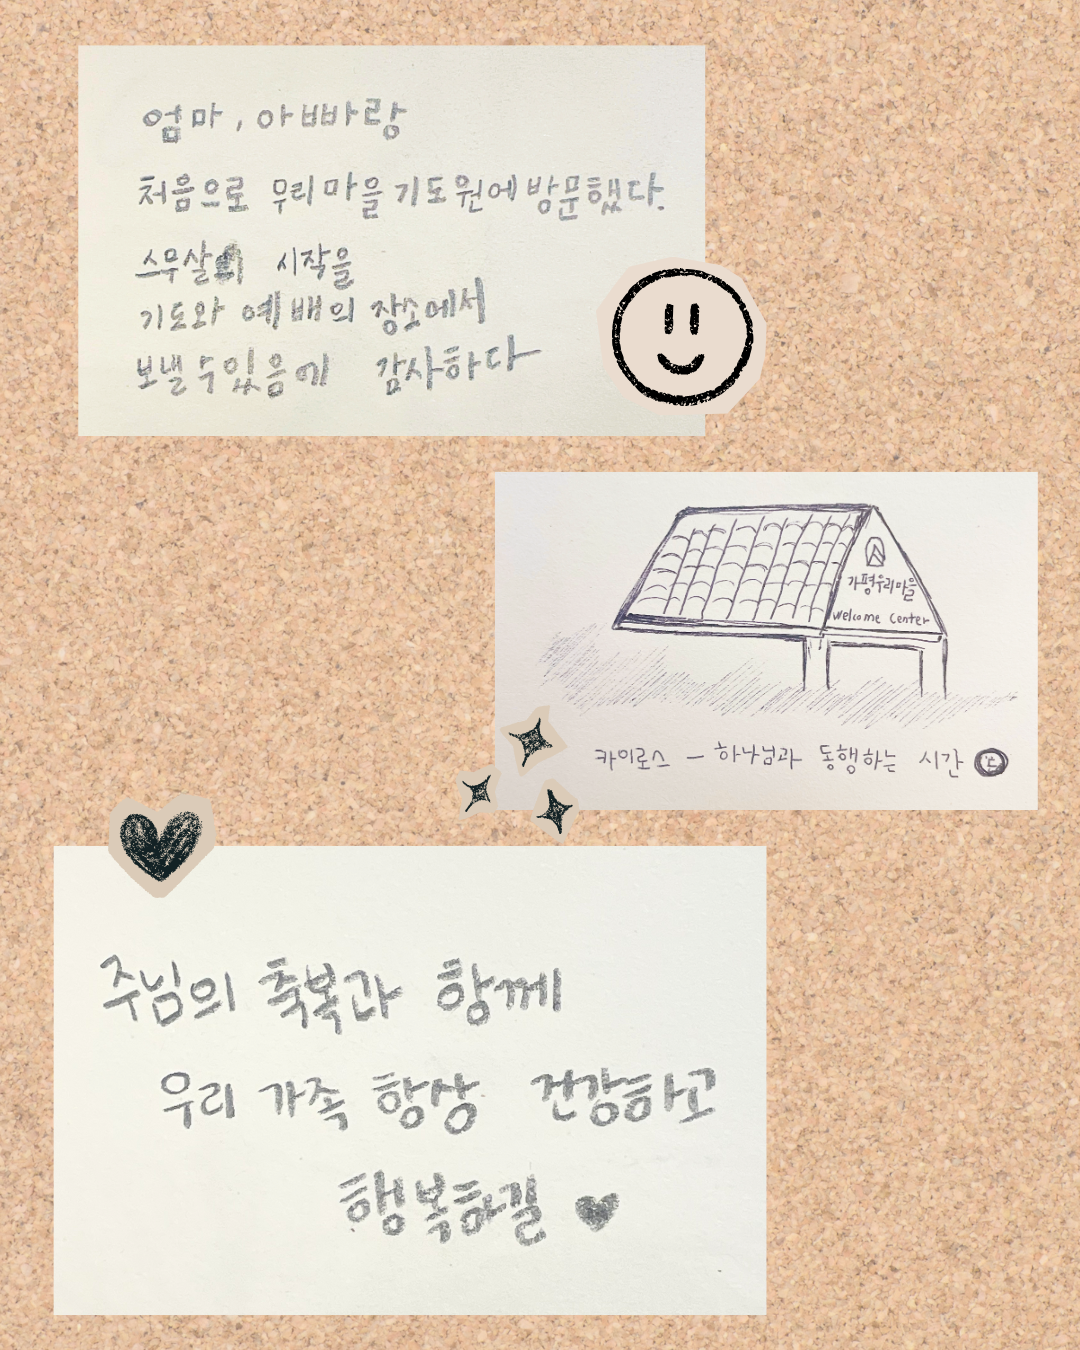 엄마, 아빠랑
처음으로 우리마을 기도원에 방문했다.
스무살의 시작을
기도와 예배의 장소에서
보낼 수 있음에 감사하다
가평우리마을
welcome center
카이로스 - 하나님과 동행하는 시간
주님의 축복과 함께
우리 가족 항상 건강하고
행복하길 ♥